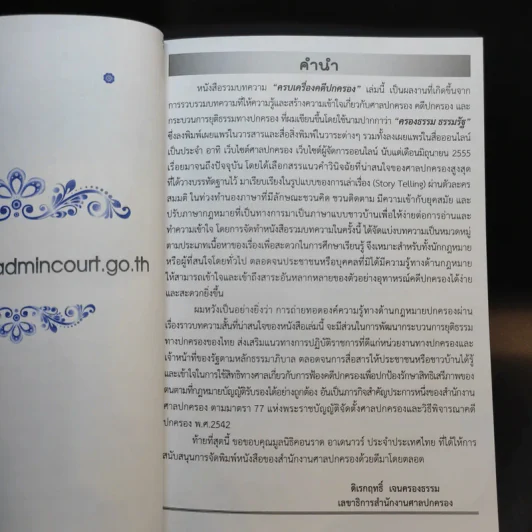 admincourt.go.th
คำนำ
หนังสือรวมบทความ “ครบเครื่องคดีปกครอง” เล่มนี้ เป็นผลงานที่เกิดขึ้นจาก
การรวบรวมบทความที่ให้ความรู้และสร้างความเข้าใจเกี่ยวกับศาลปกครอง คดีปกครอง และ
กระบวนการยุติธรรมทางปกครอง ที่ผมเขียนขึ้นโดยใช้นามปากกาว่า “ครองธรรม ธรรมรัฐ”
ซึ่งลงพิมพ์เผยแพร่ในวารสารและสื่อสิ่งพิมพ์ในวาระต่างๆ รวมทั้งลงเผยแพร่ในสื่อออนไลน์
เป็นประจำ อาทิ เว็บไซต์ศาลปกครอง เว็บไซต์ผู้จัดการออนไลน์ นับแต่เดือนมิถุนายน 2555
เรื่อยมาจนถึงปัจจุบัน โดยได้เลือกสรรแนวคำวินิจฉัยที่น่าสนใจของศาลปกครองสูงสุด
ที่ได้วางบรรทัดฐานไว้ มาเรียบเรียงในรูปแบบของการเล่าเรื่อง (Story Telling) ผ่านตัวละคร
สมมติ ในท่วงทำนองภาษาที่มีลักษณะชวนคิด ชวนติดตาม มีความเข้ากับยุคสมัย และ
ปรับภาษากฎหมายที่เป็นทางการมาเป็นภาษาแบบชาวบ้านเพื่อให้ง่ายต่อการอ่านและ
ทำความเข้าใจ โดยการจัดทำหนังสือรวมบทความในครั้งนี้ ได้จัดแบ่งบทความเป็นหมวดหมู่
ตามประเภทเนื้อหาของเรื่องเพื่อสะดวกในการศึกษาเรียนรู้ จึงเหมาะสำหรับทั้งนักกฎหมาย
หรือผู้ที่สนใจโดยทั่วไป ตลอดจนประชาชนหรือบุคคลที่มิได้มีความรู้ทางด้านกฎหมาย
ให้สามารถเข้าใจและเข้าถึงสาระอันหลากหลายของตัวอย่างอุทาหรณ์คดีปกครองได้ง่าย
และสะดวกยิ่งขึ้น
ผมหวังเป็นอย่างยิ่งว่า การถ่ายทอดองค์ความรู้ทางด้านกฎหมายปกครองผ่าน
เรื่องราวบทความสั้นที่น่าสนใจของหนังสือเล่มนี้ จะมีส่วนในการพัฒนากระบวนการยุติธรรม
ทางปกครองของไทย ส่งเสริมแนวทางการปฏิบัติราชการที่ดีแก่หน่วยงานทางปกครองและ
เจ้าหน้าที่ของรัฐตามหลักธรรมาภิบาล ตลอดจนการสื่อสารให้ประชาชนหรือชาวบ้านได้รู้
และเข้าใจในการใช้สิทธิทางศาลเกี่ยวกับการฟ้องคดีปกครองเพื่อปกป้องรักษาสิทธิเสรีภาพของ
ตนตามที่กฎหมายบัญญัติรับรองได้อย่างถูกต้อง อันเป็นภารกิจสำคัญประการหนึ่งของสำนักงาน
ศาลปกครอง ตามมาตรา 77 แห่งพระราชบัญญัติจัดตั้งศาลปกครองและวิธีพิจารณาคดี
ปกครอง พ.ศ.2542
ท้ายที่สุดนี้ ขอขอบคุณมูลนิธิคอนราด อาเดนาวร์ ประจำประเทศไทย ที่ได้ให้การ
สนับสนุนการจัดพิมพ์หนังสือของสำนักงานศาลปกครองด้วยดีมาโดยตลอด
ดิเรกฤทธิ์ เจนครองธรรม
เลขาธิการสำนักงานศาลปกครอง